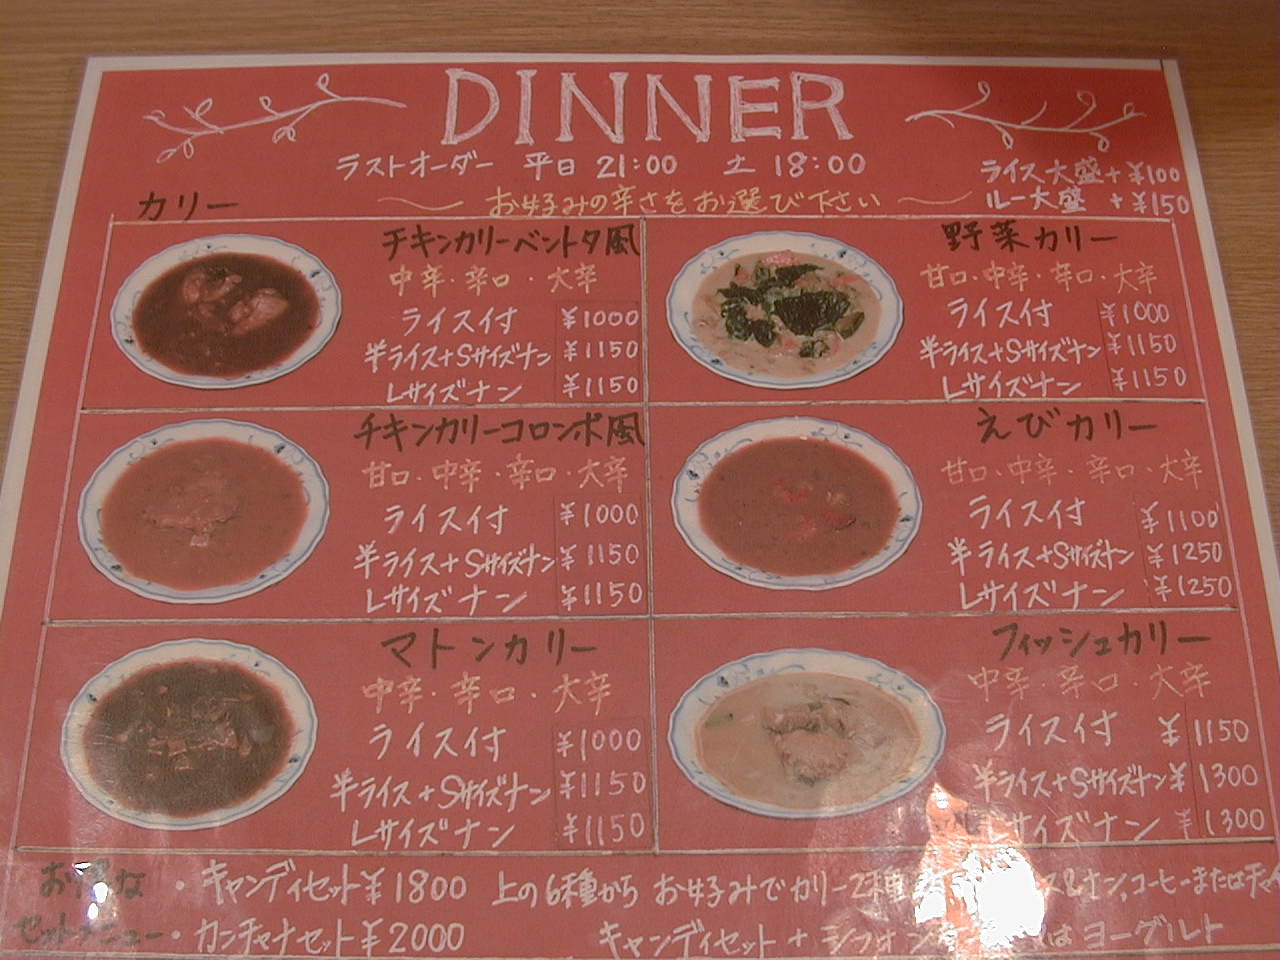 DINNER
ラストオーダー 平日 21:00 土 18:00
ライス大盛+¥100
ルー大盛 +¥150
カリー
お好みの辛さをお選び下さい
チキンカリーベントタ風
中辛・辛口・大辛
ライス付 ¥1000
半ライス+Sサイズナン ¥1150
Lサイズナン ¥1150
野菜カリー
甘口・中辛・辛口・大辛
ライス付 ¥1000
半ライス+Sサイズナン ¥1150
Lサイズナン ¥1150
チキンカリーコロンボ風
甘口・中辛・辛口・大辛
ライス付 ¥1000
半ライス+Sサイズナン ¥1150
Lサイズナン ¥1150
えびカリー
甘口・中辛・辛口・大辛
ライス付 ¥1100
半ライス+Sサイズナン ¥1250
Lサイズナン ¥1250
マトンカリー
中辛・辛口・大辛
ライス付 ¥1000
半ライス+Sサイズナン ¥1150
Lサイズナン ¥1150
フィッシュカリー
中辛・辛口・大辛
ライス付 ¥1150
半ライス+Sサイズナン ¥1300
Lサイズナン ¥1300
お得な
セットメニュー
・キャンディセット¥1800 上の6種から お好みでカリー2種 &ナン,コーヒーまたはチャイ
・カンチャナセット¥2000 キャンディセット + シフォン は ヨーグルト